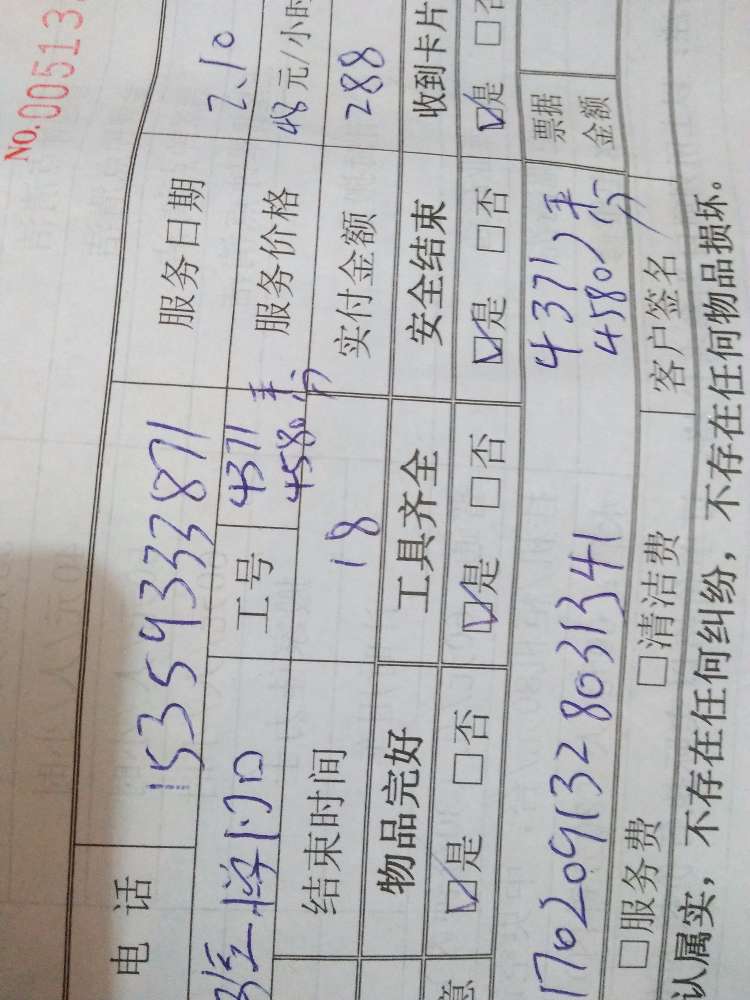 NO.00513
电话 15359333871 服务日期 2.10
工号 4371 4580 服务价格 48元/小时
结束时间 18 实付金额 288
物品完好 工具齐全 安全结束 收到卡片
☑是 □否 ☑是 □否 ☑是 □否 ☑是 □否
170209132803/341 4371 4580 票据金额
□服务费 □清洁费 客户签名
认属实，不存在任何纠纷，不存在任何物品损坏。